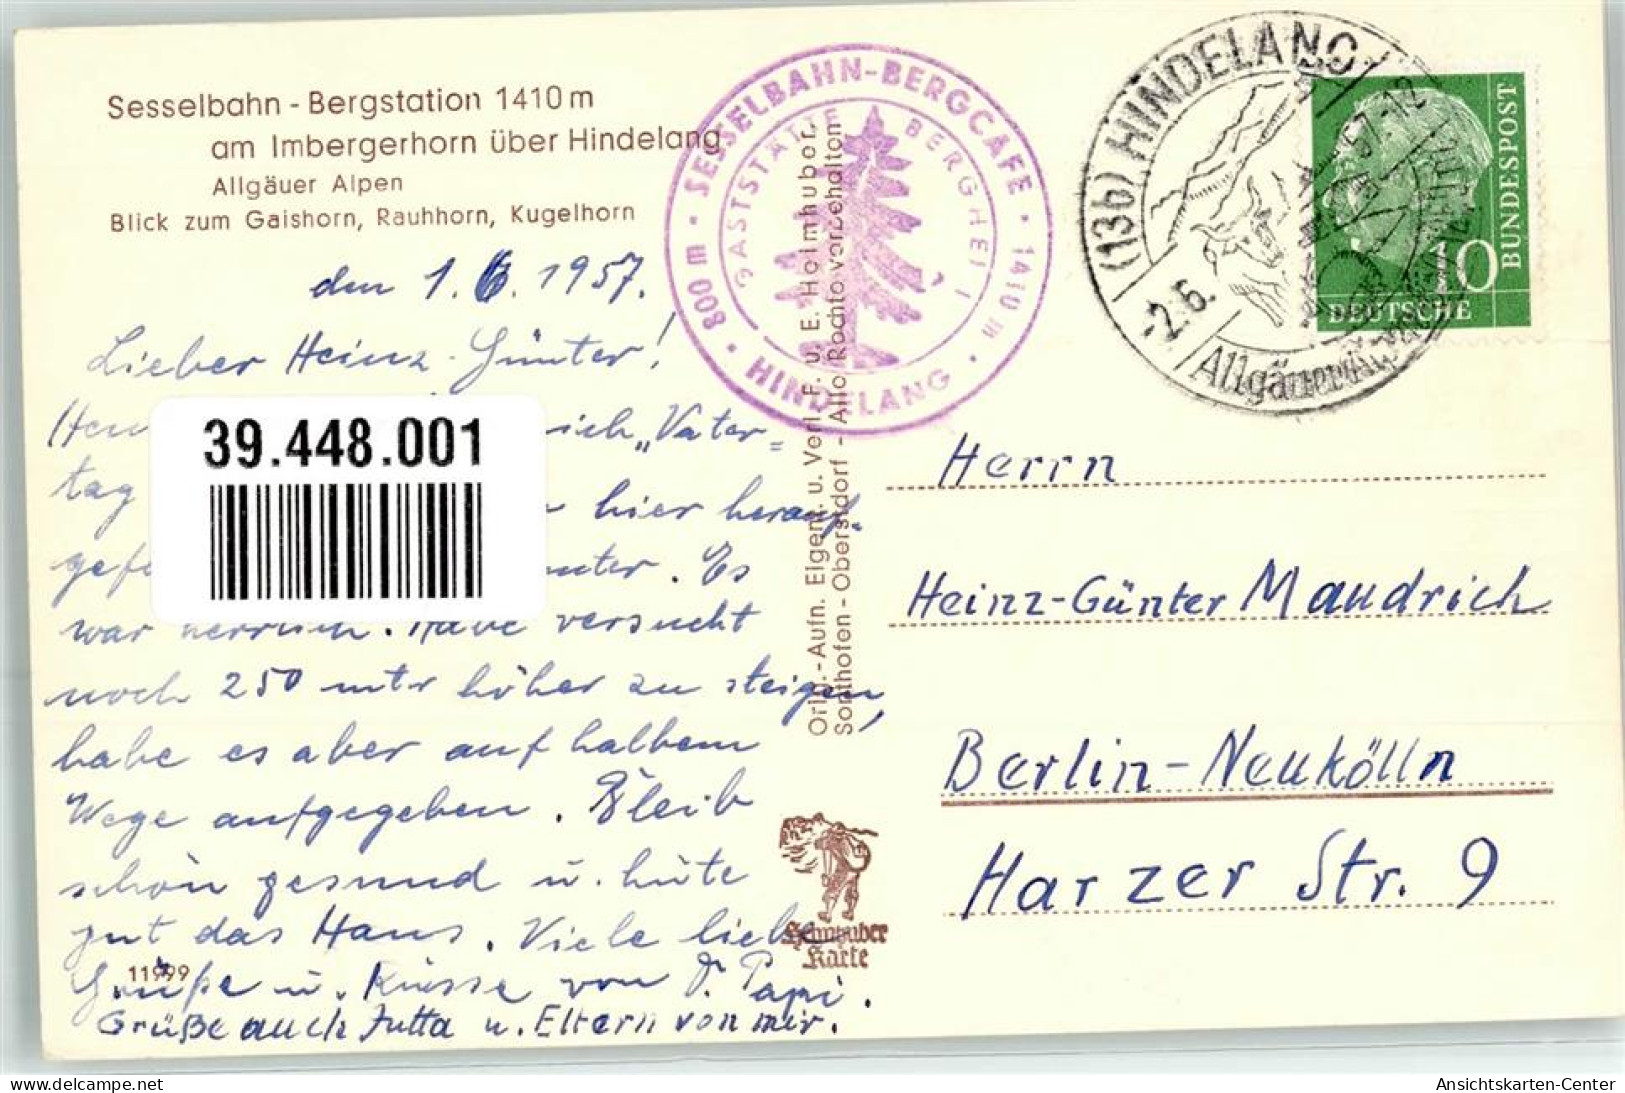 Sesselbahn - Bergstation 1410 m
am Imbergerhorn über Hindelang
Allgäuer Alpen
Blick zum Gaishorn, Rauhhorn, Kugelhorn
SESSELBAHN-BERGCAFE · 1410 m ·
800 m · HINDELANG
GASTSTÄTTE BERGHEI
(13b) HINDELANG
-2.6. 57.-12
Allgäuer
10
BUNDESPOST
DEUTSCHE
den 1. 6. 1957.
Lieber Heinz-Günter!
„Vater-
tag hier herauf-
. Es
war herrlich. Habe versucht
noch 250 mtr höher zu steigen,
habe es aber auf halbem
Wege aufgegeben. Bleib
schön gesund u. hüte
gut das Haus. Viele liebe
Grüße u. Küsse von D. Papi.
Grüße auch Jutta u. Eltern von mir.
39.448.001
11999
Orig.-Aufn. Eigent. u. Verl. F. u. E. Heimhuber,
Sonthofen-Oberstdorf - Alle Rechte vorbehalten
Heimhuber
Karte
Herrn
Heinz-Günter Maudrich
Berlin-Neukölln
Harzer Str. 9
hansi-ww
Ansichtskarten-Center